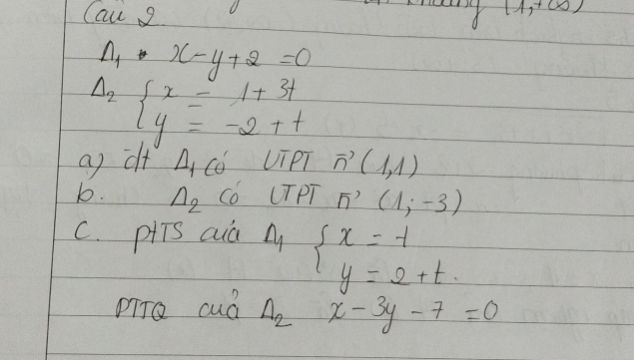 khoảng (1,+∞)
Câu 2
Δ₁ • x-y+2 =0
Δ₂ { x = 1+3t
y = -2+t
a) đt Δ₁ có VTPT n⃗ (1,1)
b. Δ₂ có VTPT n⃗ (1;-3)
c. PTTS của Δ₁ { x = t
y = 2+t.
PTTQ của Δ₂ x-3y-7=0